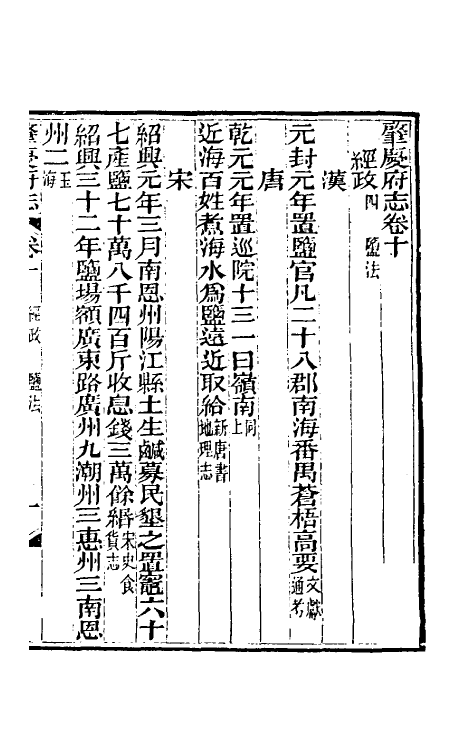 肇慶府志卷十
經政四 鹽法
漢
元封元年置鹽官凡二十八郡南海番禺蒼梧高要文獻通考
唐
乾元元年置巡院十三一曰嶺南同上
近海百姓煮海水爲鹽遠近取給新唐書地理志
宋
紹興元年三月南恩州陽江縣土生鹹募民墾之置竈六十
七產鹽七十萬八千四百斤收息錢三萬餘緡宋史食貨志
紹興三十二年鹽場額廣東路廣州九潮州三惠州三南恩
州二玉海
肇慶府志 卷十 經政 鹽法 一